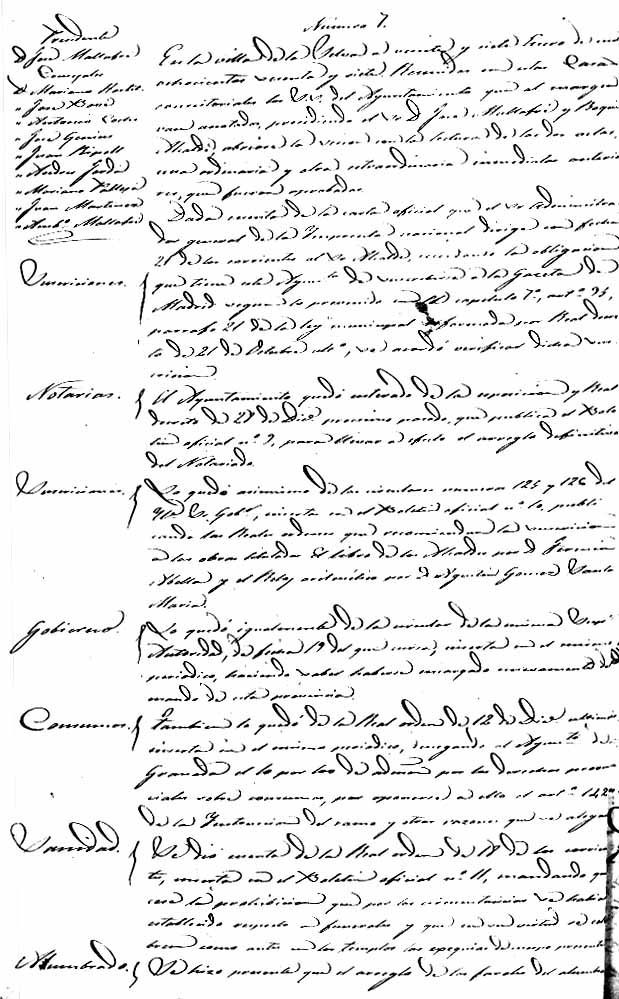 Número 7.
Presidente
D. José Mallafré
Concejales
D. Mariano
" José
" Antonio
" José
" Juan Ripoll
" Andreu Jordá
" Mariano
" Juan
" Mallafré
En la villa de la Selva a veinte y siete Enero de mil
ochocientos setenta y siete Reunidos en estas Casas
consistoriales los SS. del Ayuntamiento que al margen
van anotados, presididos el Sr. D. José Mallafré y
Alcalde, abriose la sesion con la lectura de las dos actas,
una ordinaria y otra extraordinaria inmediatas anterio
res, que fueron aprobadas.
Dada cuenta de la carta oficial que el Sr. Administra
dor general de la Imprenta nacional dirige con fecha
21 de los corrientes al Sr. Alcalde, la obligacion
Suscriciones.
que tiene este Aymto. de suscribirse a la Gaceta de
Madrid segun lo prevenido en el capitulo 7º, artº
parrafo 21 de la ley municipal reformada por Real decre
to de 21 de Octubre ultº, se acordó verificar dicha sus
cricion.
Notarias.
El Ayuntamiento quedó enterado de la esposicion y Real
decreto de 27 de Dice. proximo pasado, que publica el Bole
tin oficial nº 9, para llevar a efecto el arreglo definitivo
del Notariado.
Suscriciones.
Lo quedó asimismo de las circulares numeros 125 y 126 del
Sr. Gobr., inserta en el Boletin oficial nº 10, publi
cando las Reales ordenes que recomiendan la suscricion
a las obras tituladas El libro de los Alcaldes por D. Fermin
Abella y el Reloj aritmético por D. Agustin Gomez Santa
Maria.
Gobierno.
Lo quedó igualmente de la circular de la misma Supr.
Autoridad, de fecha 19 del que cursa, inserta en el mismo
periodico, haciendo saber haberse encargado nuevamente del
mando de esta provincia.
Consumos.
Tambien lo quedó de la Real orden de 12 de Dice. ultimo
inserta en el mismo periodico, negando al Aymto. de
Granada el por los de aduana por los derechos provin
ciales sobre consumos, por oponerse a ello el artº
de la Instruccion del ramo y otras razones que se alegan
Sanidad.
Se dió cuenta de la Real orden de 18 de los corrien
tes, inserta en el Boletin oficial nº 11, mandando que
cese la prohibicion que por las circunstancias se habia
establecido respecto a funerales y que en su virtud se cele
bren como antes en los templos las exequias de cuerpo presente
Alumbrado.
Se hizo presente que el arreglo de los faroles del alumbra